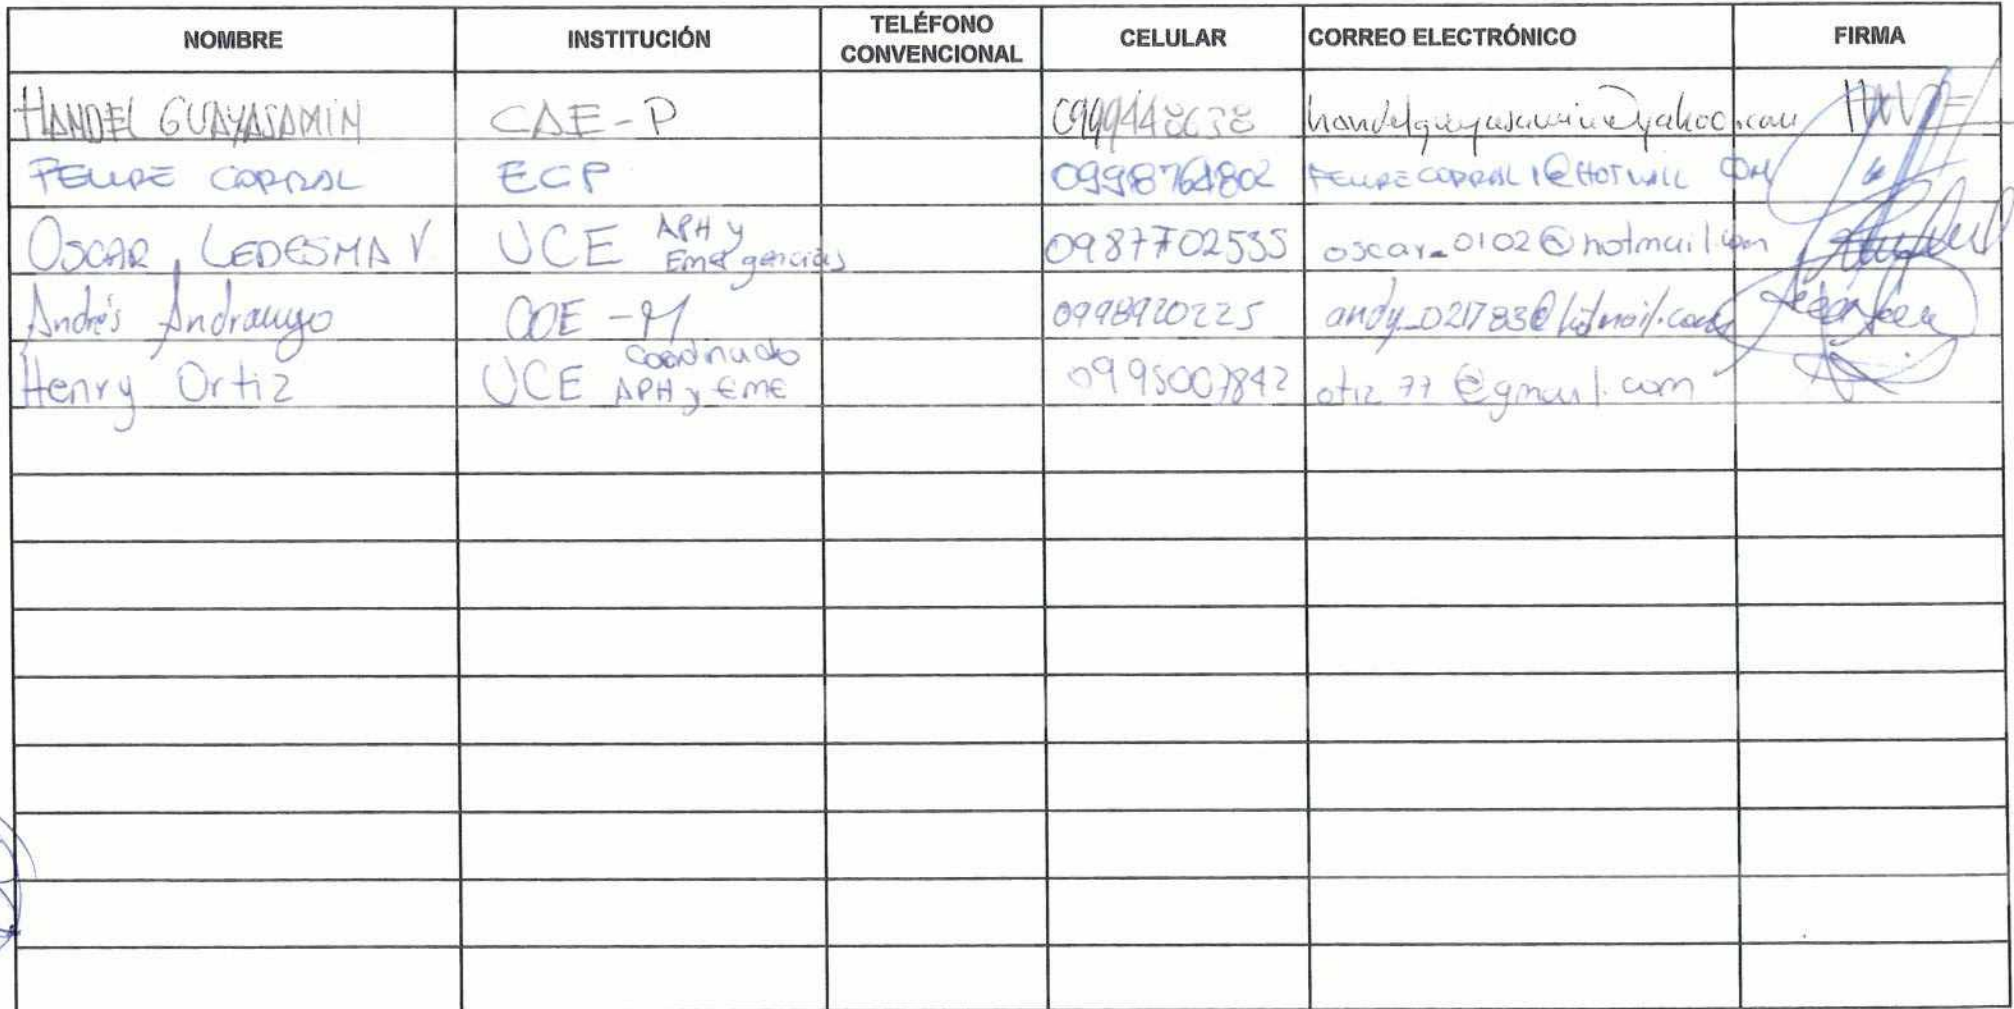 NOMBRE INSTITUCIÓN TELÉFONO CONVENCIONAL CELULAR CORREO ELECTRÓNICO FIRMA
HANDEL GUAYASAMIN CAE-P handelguayasamin@yahoo.com
FELIPE CORRAL ECP FELIPECORRAL1@HOTMAIL COM
OSCAR LEDESMA V. UCE APH y Emergencias 0987702535 oscar_0102@hotmail.com
Andrés Andrango COE-M 0998920225 andy_021783@hotmail.com
Henry Ortiz UCE Coordinado APH y EME 0995007842 otiz77@gmail.com